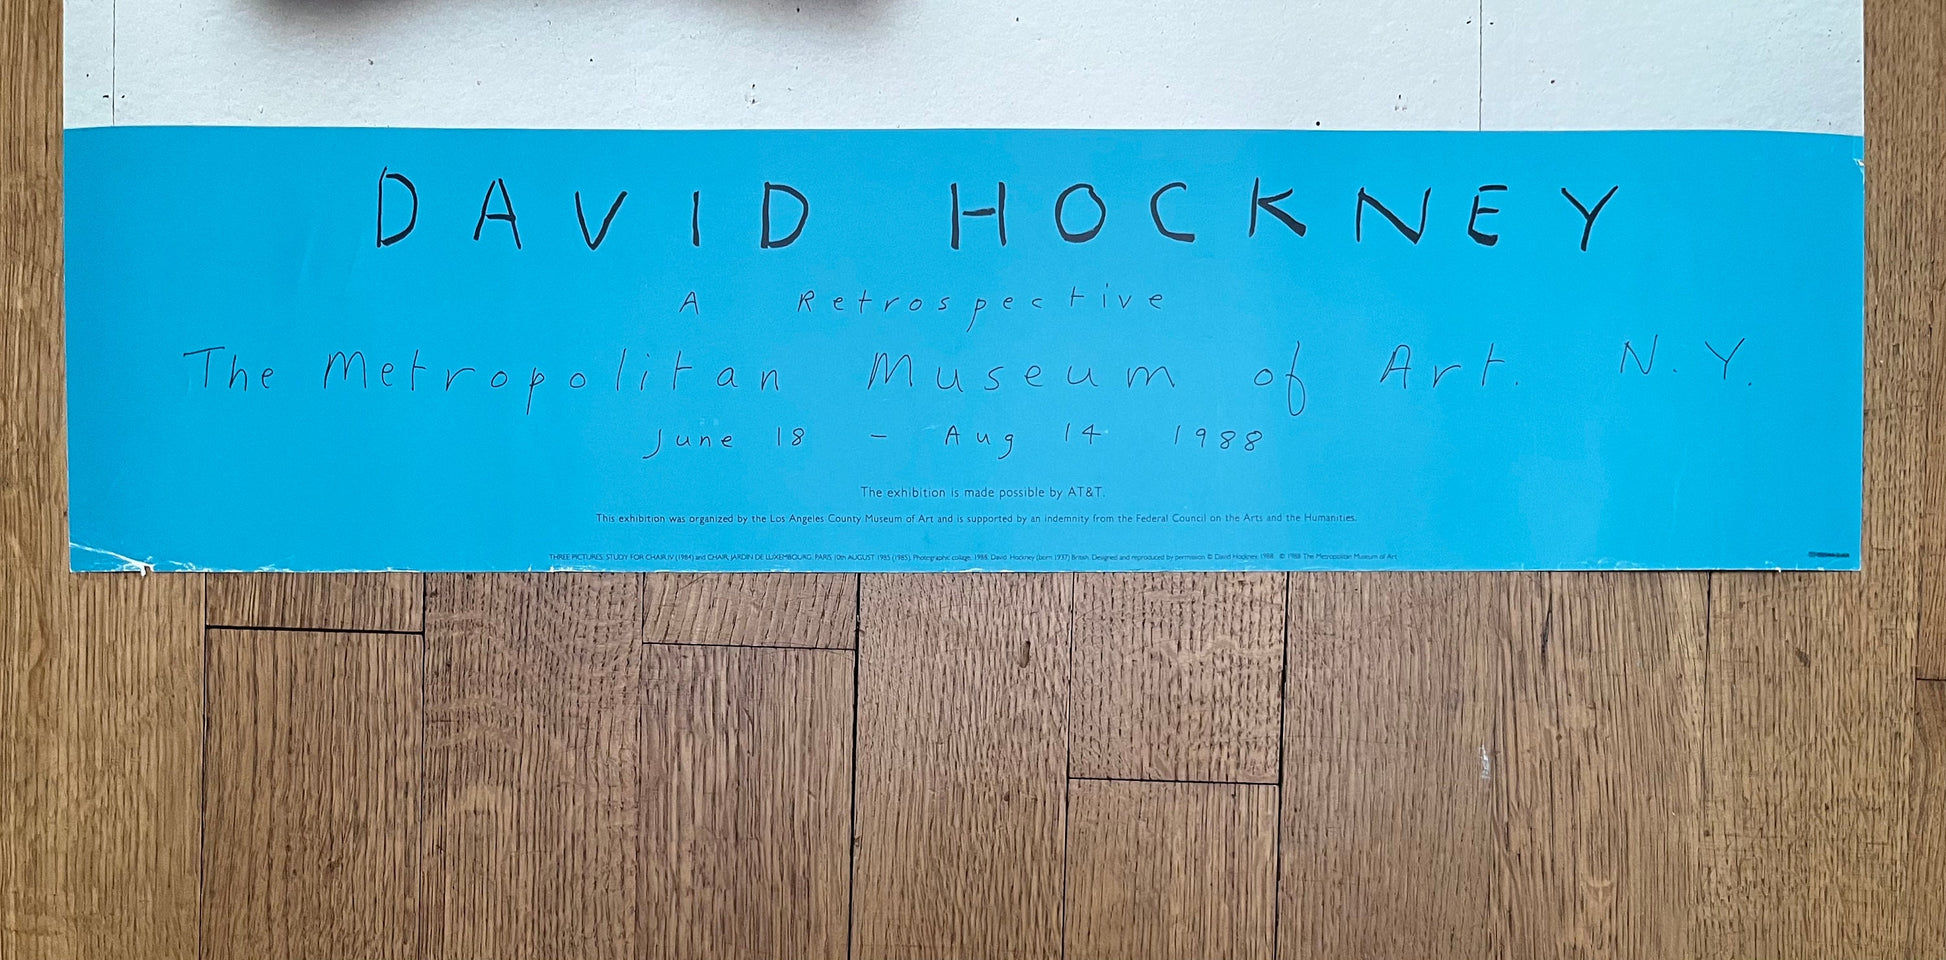 DAVID HOCKNEY
A Retrospective
The Metropolitan Museum of Art. N.Y.
June 18 - Aug 14 1988
The exhibition is made possible by AT&T.
This exhibition was organized by the Los Angeles County Museum of Art and is supported by an indemnity from the Federal Council on the Arts and the Humanities.
THREE PICTURES: STUDY FOR CHAIR IV (1984) and CHAIR, JARDIN DE LUXEMBOURG, PARIS, 10th AUGUST 1985 (1985). Photographic collage, 1986. David Hockney (born 1937) British. Designed and reproduced by permission © David Hockney 1988 © 1988 The Metropolitan Museum of Art